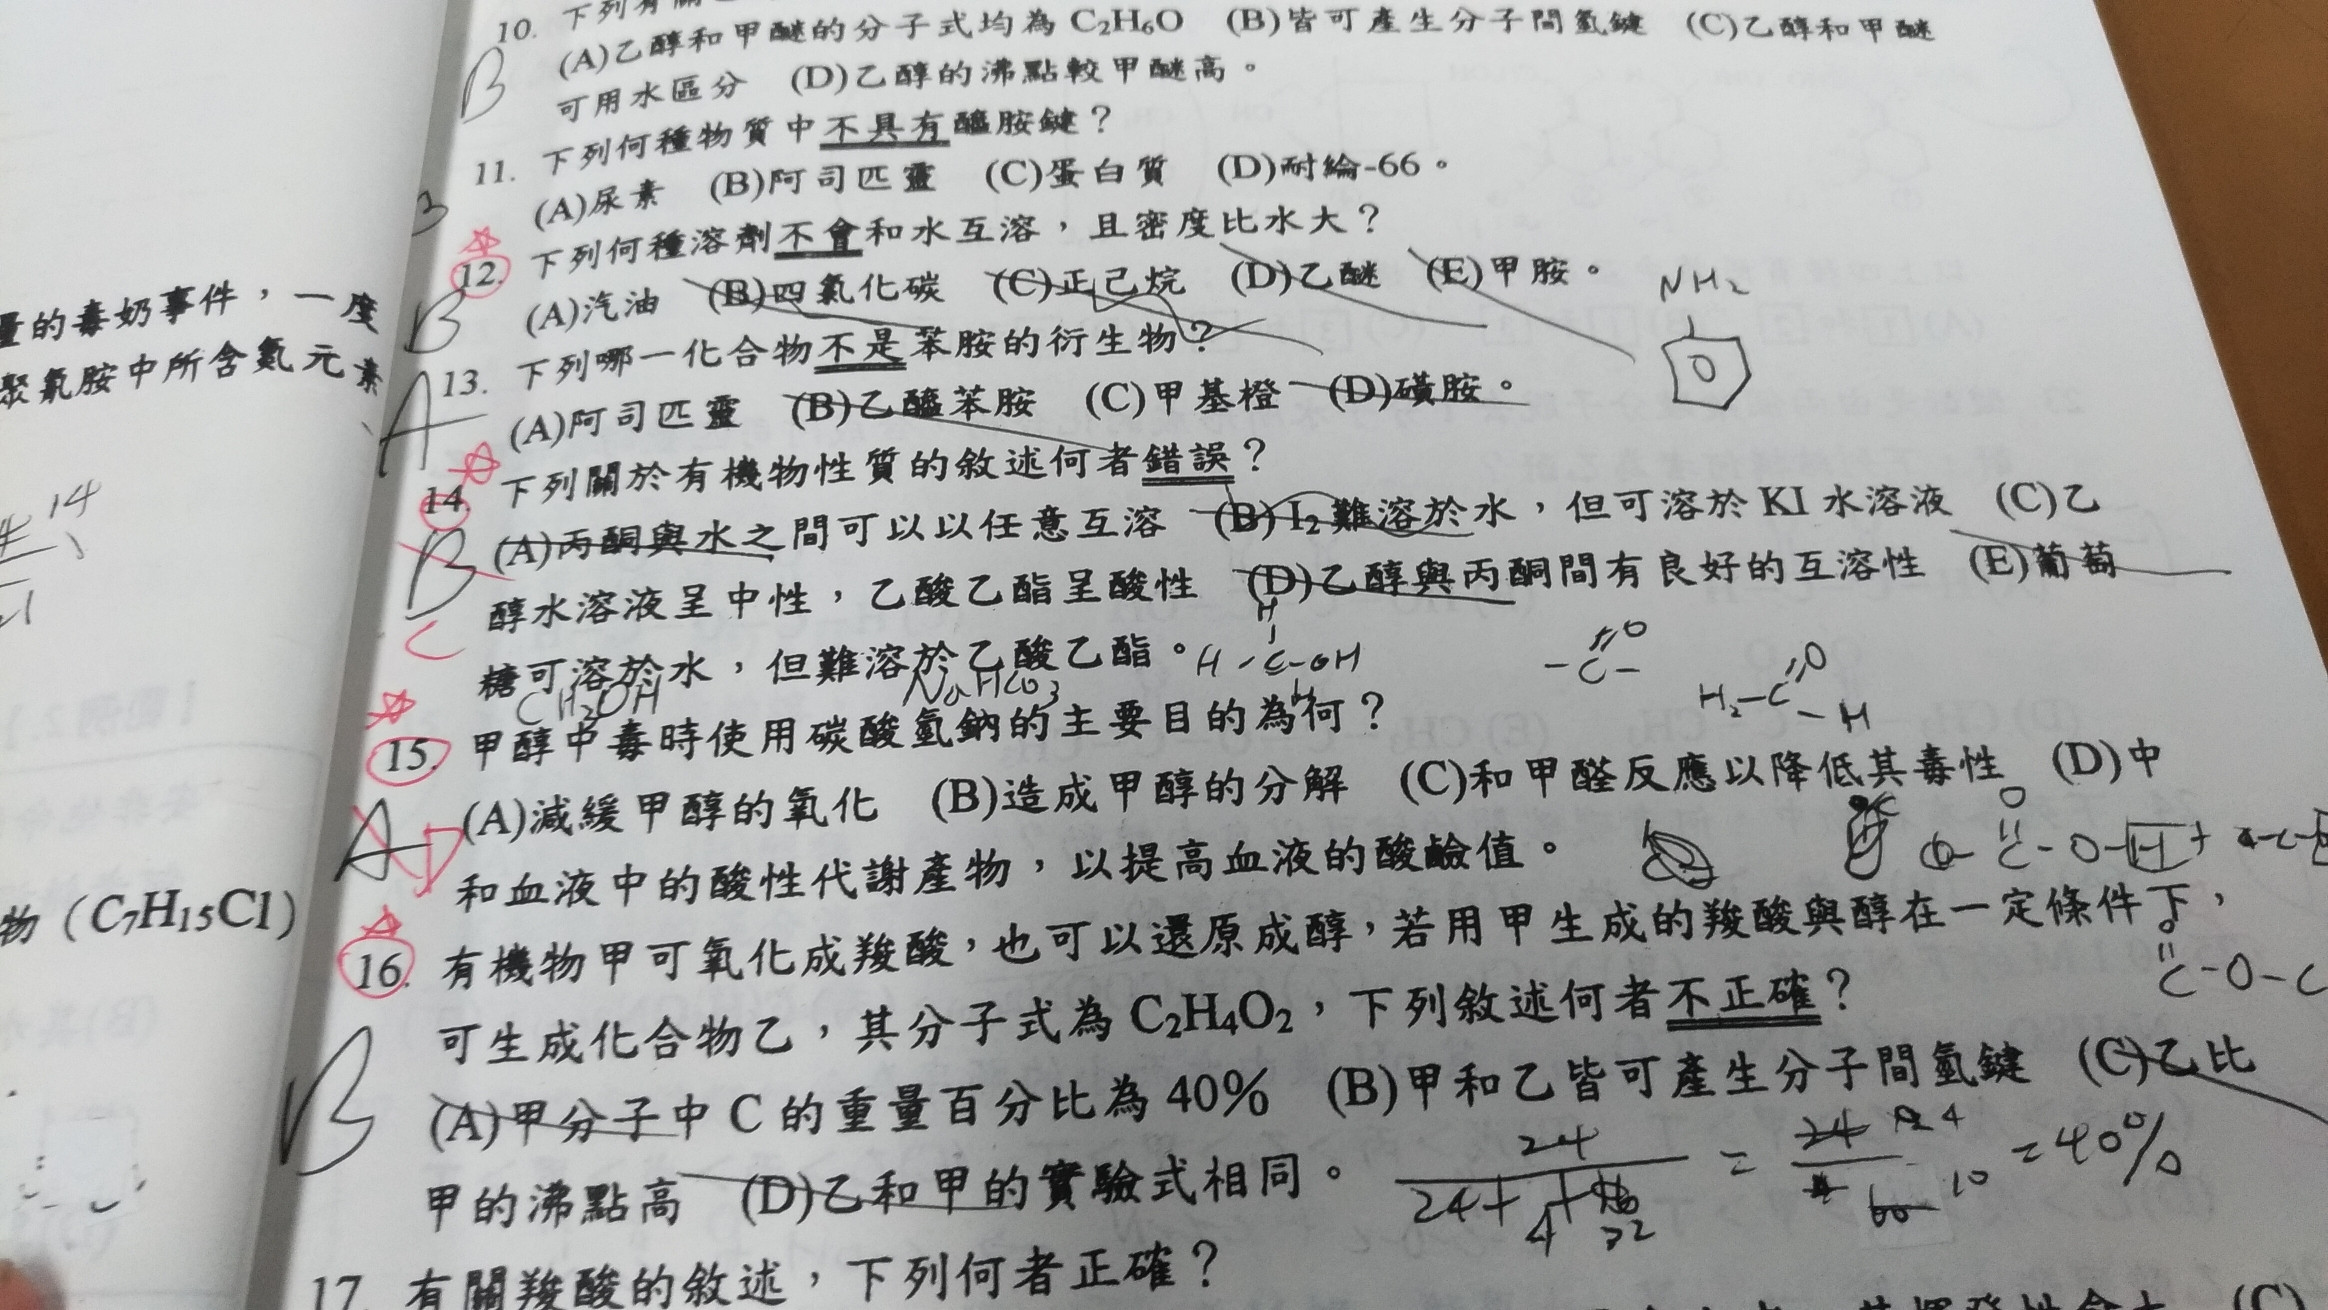 量的毒奶事件，一度
聚氰胺中所含氮元素
14
物（C7H15Cl）
10. 下列有關
(A)乙醇和甲醚的分子式均為C2H6O (B)皆可產生分子間氫鍵 (C)乙醇和甲醚
B
可用水區分 (D)乙醇的沸點較甲醚高。
11. 下列何種物質中不具有醯胺鍵？
(A)尿素 (B)阿司匹靈 (C)蛋白質 (D)耐綸-66。
B
12. 下列何種溶劑不會和水互溶，且密度比水大？
(A)汽油 (B)四氯化碳 (C)正己烷 (D)乙醚 (E)甲胺。
B
NH2
13. 下列哪一化合物不是苯胺的衍生物？
(A)阿司匹靈 (B)乙醯苯胺 (C)甲基橙 (D)磺胺。
A
14. 下列關於有機物性質的敘述何者錯誤？
(A)丙酮與水之間可以以任意互溶 (B)I2難溶於水，但可溶於KI水溶液 (C)乙
B
醇水溶液呈中性，乙酸乙酯呈酸性 (D)乙醇與丙酮間有良好的互溶性 (E)葡萄
C
糖可溶於水，但難溶於乙酸乙酯。
H
H-C-OH
H
-C-
O
H2-C
O
-H
CH3OH
NaHCO3
15. 甲醇中毒時使用碳酸氫鈉的主要目的為何？
(A)減緩甲醇的氧化 (B)造成甲醇的分解 (C)和甲醛反應以降低其毒性 (D)中
A D
和血液中的酸性代謝產物，以提高血液的酸鹼值。
O
C-O-H+
16. 有機物甲可氧化成羧酸，也可以還原成醇，若用甲生成的羧酸與醇在一定條件下，
O
C-O-C
可生成化合物乙，其分子式為C2H4O2，下列敘述何者不正確？
(A)甲分子中C的重量百分比為40% (B)甲和乙皆可產生分子間氫鍵 (C)乙比
B
甲的沸點高 (D)乙和甲的實驗式相同。
24
24+4+32
=
24 4
60 10
=40%
17. 有關羧酸的敘述，下列何者正確？
(C)